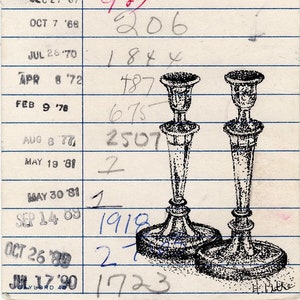 OCT 7 '68 206
JUL 26 '70 1844
APR 6 '72 487
FEB 9 '76 675
AUG 8 77 2507
MAY 19 '81 2
MAY 30 '81 1
SEP 14 89 1918
OCT 26 '89 2
JUL 17 '90 1723
GAYLORD